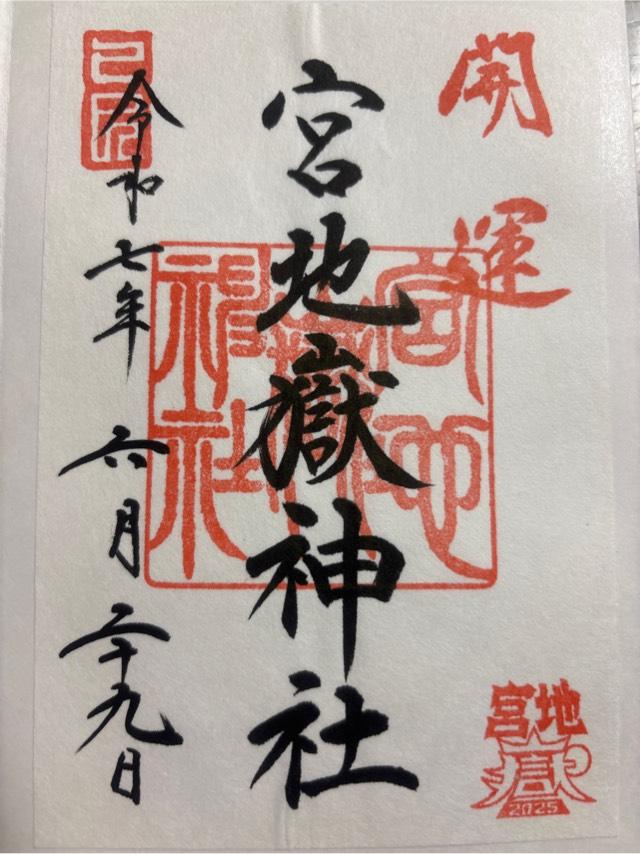 開運
宮地嶽神社
宮地嶽神社
令和七年 六月二十九日
己巳
宮地
嶽
2025